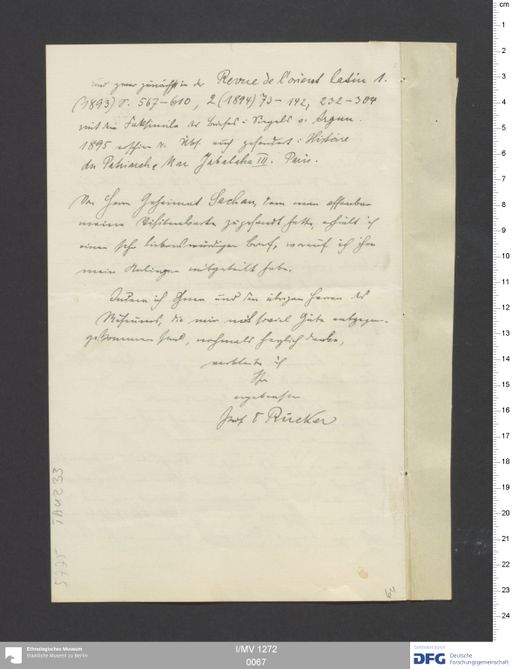 und zwar zunächst in der Revue de l'orient latin 1.
(1893) S. 567–610, 2 (1894) 73–142, 232–304
mit dem Faksimile des Briefes u. Siegels v. Argun.
1895 erschien d. Übs. auch gesondert: Histoire
du Patriarche Mar Jabalaha III. Paris.
Von Herrn Geheimrat Sachau, dem man offenbar
meine Visitenkarte zugesandt hatte, erhielt ich
einen sehr liebenswürdigen Brief, worauf ich ihm
mein Anliegen mitgeteilt habe.
Indem ich Ihnen und den übrigen Herren des
Museums, die mir mit soviel Güte entgegen-
gekommen sind, nochmals herzlich danke,
verbleibe ich
Ihr
ergebenster
Prof. Rücker
64
Ethnologisches Museum
Staatliche Museen zu Berlin
I/MV 1272
0067
DFG Deutsche
Forschungsgemeinschaft
cm
1
2
3
4
5
6
7
8
9
10
11
12
13
14
15
16
17
18
19
20
21
22
23
24